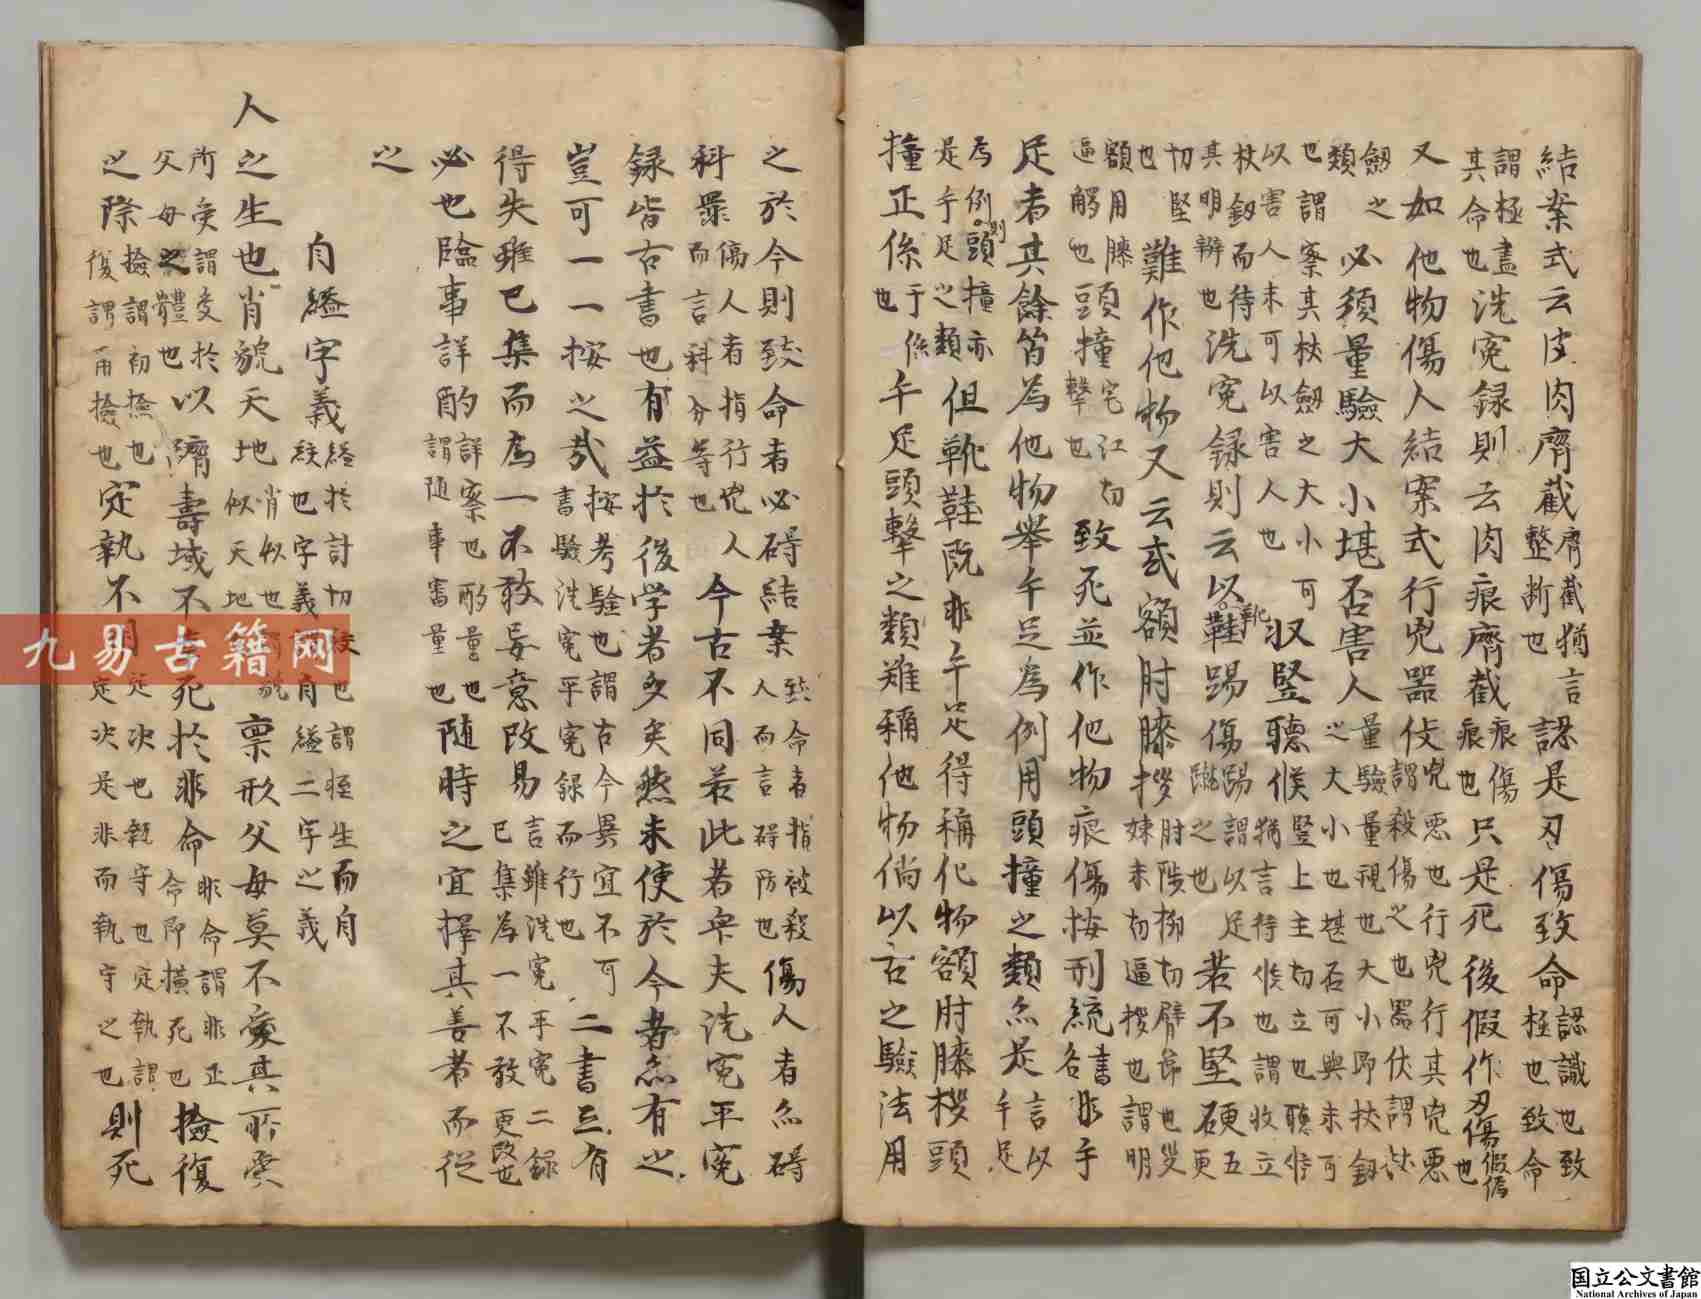 結案式云皮肉齊截齊截猶言整斷也認是刃傷致命認識也致極也致命
謂極盡其命也洗冤録則云肉痕齊截痕傷痕也只是死後假作刃傷假偽也
又如他物傷人結案式行兇器仗兇惡也行兇行其兇惡謂殺傷之也器伏謂
劔之類必須量驗大小堪否害人量驗量視也大小即杖釼之大小也堪否可與未可
也謂案其杖劔之大小可以害人未可以害人也収竪聽候竪上主切立也聽
杖釼而待其明辨也洗冤録則云以鞋靴踢傷踢謂以足蹴之也若不堅硬
切堅也難作他物又云或額肘膝拶肘陟柳切臂節也
額用膝逼觸也頭撞宅江切擊也致死並作他物痕傷按刑統書各非手
足者其餘皆為他物舉手足為例用頭撞之類亦是言以手足
為例則頭撞亦是手足之類但靴鞋既非手足得稱他物額肘膝拶頭
撞正係于係也手足頭擊之類難稱他物倘以古之驗法用
之於今則致命者必碍結案致命者指被殺人而言碍防也傷人者亦碍
科罪傷人者指行兇人而言科分等也今古不同若此者與夫洗冤平冤
録皆古書也有益於後学者多矣然未使於今者亦有之
豈可一一按之哉按考驗也謂古今異宜不可書驗洗冤平冤録而行也二書亦有
得失雖已集而為一不敢妄意改易言雖洗冤平冤二録已集為一不敢更改也
必也臨事詳酌詳察也酌量也謂随事審量也随時之宜擇其善者而從
之
自縊字義縊於計切絞也字義謂自縊二字之義
人
之生也肖貌天地肖似也似天地禀形父母莫不愛其所受
所受謂受於父母之體也以躋壽域不死於非命非命謂非正命即横死也撿復
之際撿謂初撿也復謂再撿也定執不定决也執守也定執謂定决是非而執守之也則死
九易古籍网
国立公文書館
National Archives of Japan